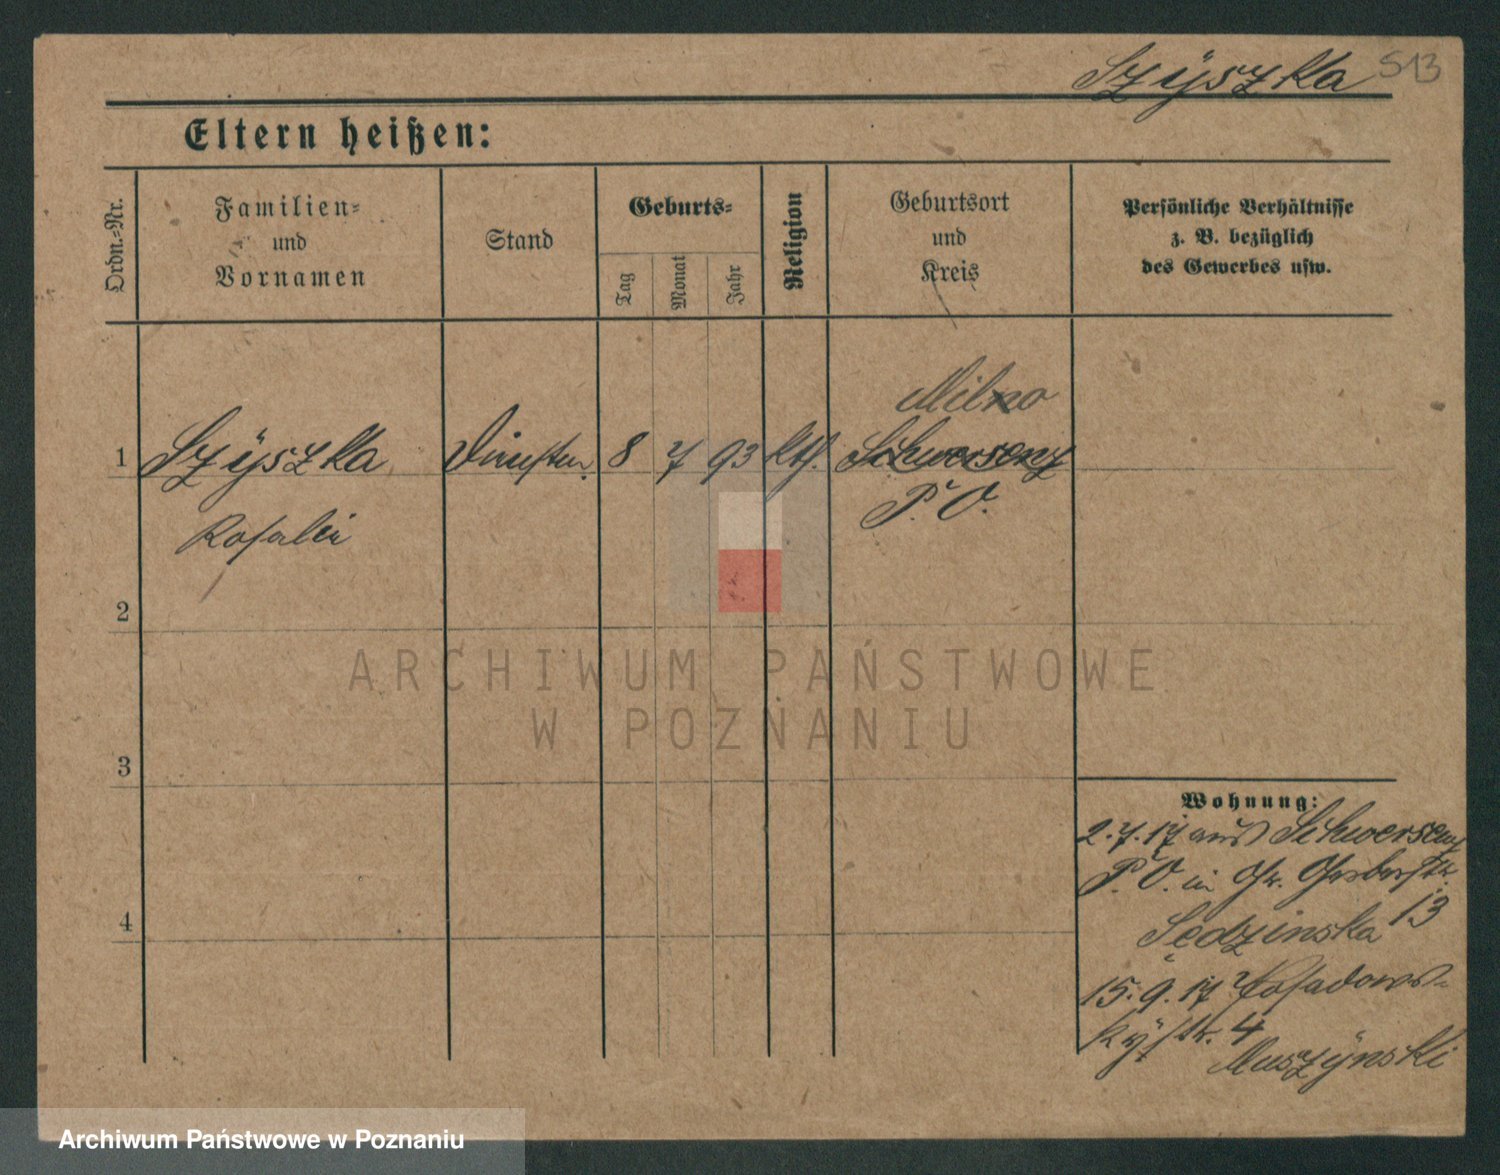 Szÿszka 513
Eltern heißen:
Ordn.-Nr.
Familien-
und
Vornamen
Stand
Geburts-
Tag
Monat
Jahr
Religion
Geburtsort
und
Kreis
Persönliche Verhältnisse
z. B. bezüglich
des Gewerbes usw.
Milno
1 Szÿszka 8 7 93 kth. Schwersenz
P. O.
Rosalie
2
3
4
Wohnung:
2.7.17 aus Schwersenz
P. O. in Gr. Gerberstr.
13
Sędzinska
15.9.17 Posadows-
kÿstr. 4
Muszÿnski
ARCHIWUM PAŃSTWOWE
W POZNANIU
Archiwum Państwowe w Poznaniu